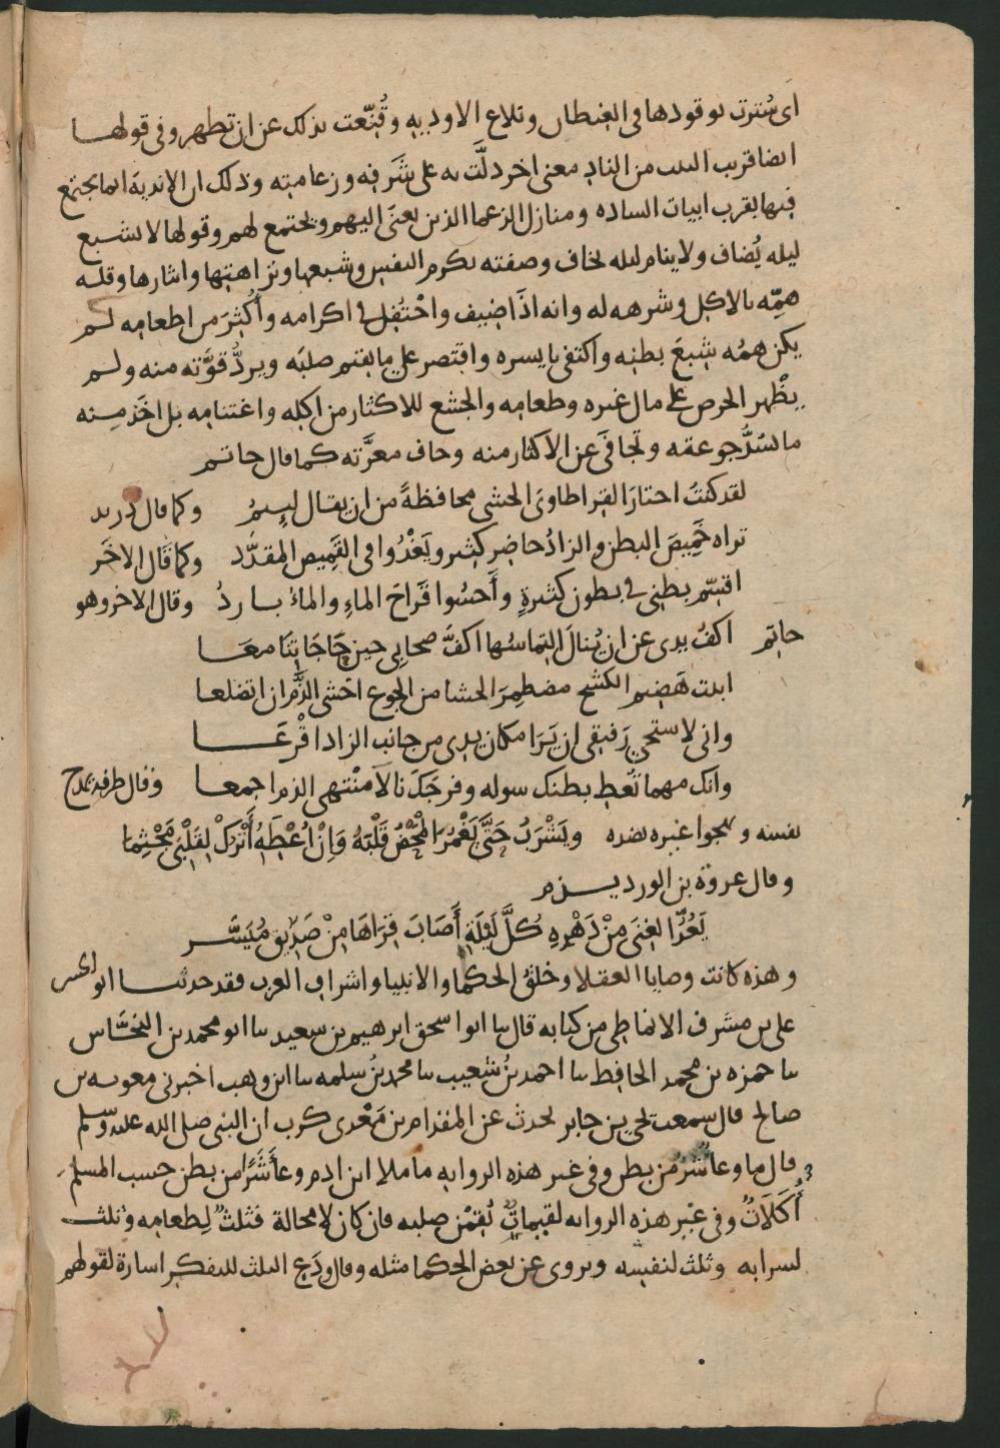 اى سُترت بوقودها فى الغيطان وتلاع الاوديه وقُنِّعت بذلك عن ان تظهر وفى قولها
ايضا قريب البيت من الناد معنى اخر دلَّت به على شَرَفِه وزعامته وذلك ان الاندية انما يجتمع
فيها بقرب ابيات الساده ومنازل الزعما الذين يعنى اليهم ويجتمع لهم وقولها لا يشبع
ليله يُضاف ولا ينام ليله يخاف وصفته بكرم النفس وشبعها ونزاهتها وايثارها وقله
همِّه بالاكل وشرهه له وانه اذا ضيف واحْتُفل فى اكرامه وأُكثِرَ من اطعامه لم
يكن همُه شبعَ بطنِه واكتفى بايسره واقتصر على ما يقيم صلبَه ويردُّ قوَّته منه ولم
يظْهر الحرص على مال غيره وطعامه والجشع للاكثار من اكله واغتنامه بل اخَذ منه
ما يسُدُّ جوعته وتجافَى عن الاكثار منه وخاف معرَّته كما قال حاتم
لقد كنتُ اختارَ القِرا طاوىَ الحشى محافظةً من ان يقال لئيمُ وكما قال دريد
تراه خَمِيصَ البطن والزادُ حاضر كثير ويَغْدُوا فى القميص المقدَّد وكما قال الاخَر
اقسّم بطنى فى بطون كثيرةٍ وأَحسُوا قَراحَ الماءِ والماءُ بارِدُ وقال الاخر وهو
حاتم اكفُّ يدى عن ان ينالَ التماسُها اكفَّ صحابى حين حَاجَاتِنَا معَا
ابيت هَضيم الكشح مضطمِرَ الحشا من الجوع اخشى الذَّمَّ ان اتضلعا
وانى لاستحيى رَفيقى ان يَرَا مكان يدى من جانب الزاد اقْرعَا
وانك مهما تُعطِ بطنك سوله وفرجَكَ نالا مُنْتهى الذم اجمعا وقال طرفه يمدح
نفسه ويهجوا غيره بضده ويَشْرَبُ حَتَّى يَغْمُرَ الْمَحْضُ قَلْبَهُ وَاِنْ اُعْطَهُ أَتْرُكْ لِقَلْبِى مَجْثِما
وقال عروة بن الورد يذم
يَعُدُّ الغِنَى مِنْ دَهْرِهِ كُلَّ لَيْلَةٍ أَصَابَ قِرَاهَا مِنْ صَدِيقٍ مُيَسَّر
وهذه كانت وصايا العقلا وخلق الحكما والانبيا واشراف العرب فقد حدثنا ابو الحسن
على بن مشرف الانماطى من كتابه قال نا ابو اسحق ابرهيم بن سعيد نا ابو محمد بن النحَّاس
نا حمزه بن محمد الحافظ نا احمد بنُ شعيب نا محمد بنُ سلمه نا ابن وهب اخبرنى معويه بن
صالح قال سمعت يحيى بن جابر يحدث عن المقدام بن مَعْدى كرب ان النبى صلى الله عليه وسلم
قال ما وعا شرٌّ من بطن وفى غير هذه الروايه ما ملا ابن ادم وعاً شَرًّا من بطن حسب المسلم
أُكَلَاتٌ وفى غير هذه الروايه لقيماتٌ يُقِمْن صلبه فان كان لا محالة فثلثٌ لِطعامِه وثلث
لشرابه وثلث لنفسِه ويروى عن بعض الحكما مثله وقال ودَع الثلث للتفكر اشارة لقولهم